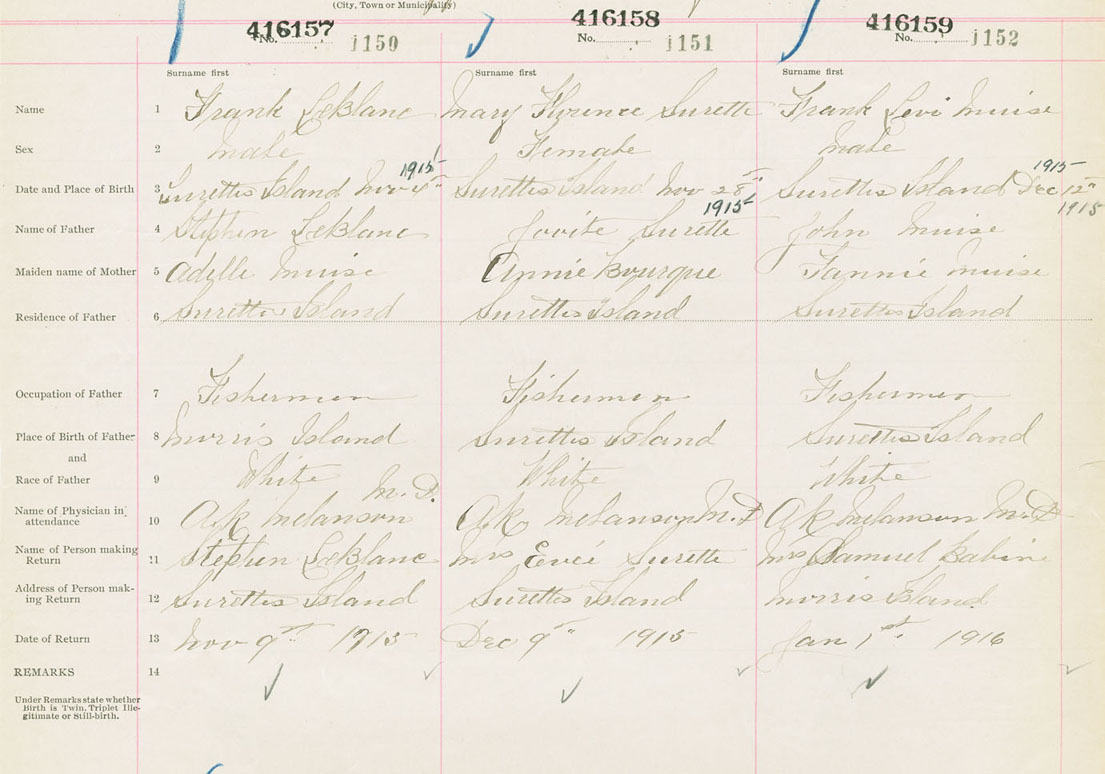 (City, Town or Municipality)
416157 416158 416159
No. j150 No. j151 No. j152
Surname first Surname first Surname first
Name 1 Frank LeBlanc Mary Florence Surette Frank Levi Muise
Sex 2 Male Female Male
1915 1915
Date and Place of Birth 3 Surettes Island Nov 4" Surettes Island Nov 28" Surettes Island Dec 12"
1915 1915
Name of Father 4 Stephen LeBlanc Jovite Surette John Muise
Maiden name of Mother 5 Adelle Muise Annie Bourque Fannie Muise
Residence of Father 6 Surettes Island Surettes Island Surettes Island
Occupation of Father 7 Fisherman Fisherman Fisherman
Place of Birth of Father 8 Morris Island Surettes Island Surettes Island
and
Race of Father 9 White White White
M.D.
Name of Physician in attendance 10 A K Melanson A K Melanson M.D A K Melanson M.D
Name of Person making Return 11 Stephen LeBlanc Mrs Surette Mrs Samuel Babine
Address of Person making Return 12 Surettes Island Surettes Island Morris Island
Date of Return 13 Nov 9 1915 Dec 9 1915 Jan 1st 1916
REMARKS 14
Under Remarks state whether
Birth is Twin, Triplet Ille-
gitimate or Still-birth.